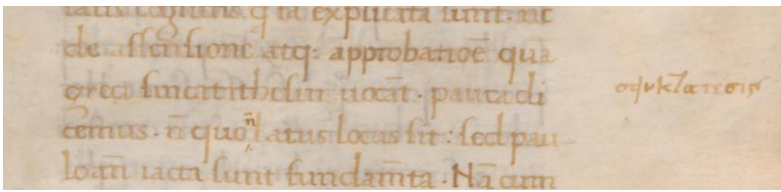 latius cognitis q̄ ita explicita sunt· nc̄
de assensione atq: approbatioē quā
greci sincatithesin uocāt· pauca di
cemus· n̄ quo n̄ latus locus sit: sed pau
loān iacta sunt fundam̄ta· Nā cum